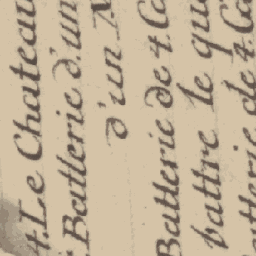 4. Le Chateau
Batterie d'un
d'un
Batterie de 4. Ca
battre le qu
Batterie de 4. Ca